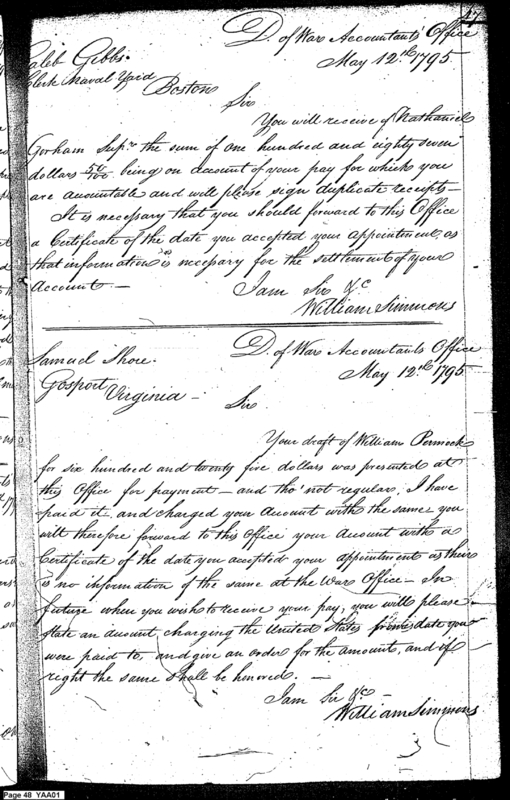 47
D. of War Accountants Office
May 12.th 1795
Caleb Gibbs.
Clerk Naval Yard
Boston
Sir
You will receive of Nathaniel
Gorham Supr. the sum of one hundred and eighty seven
dollars 50/100 being on account of your pay for which you
are accountable and will please sign duplicate receipts—
It is necessary that you should forward to this Office
a Certificate of the date you accepted your appointment, as
that information is necessary for the settlement of your
Account —
I am Sir &c
William Simmons
D. of War Accountants Office
May 12.th 1795
Samuel Shore.
Gosport
Virginia —
Sir
Your draft of William Pennock
for six hundred and twenty five dollars was presented at
this Office for payment — and tho' not regular, I have
paid it and charged your Account with the same you
will therefore forward to this Office your Account with a
Certificate of the date you accepted your appointment as their
is no information of the same at the War Office — In
future when you wish to receive your pay, you will please
state an account, charging the United States from date you
were paid to, and give an order for the amount, and if
right the same shall be honored. —
I am Sir &c —
William Simmons
Page 48 YAA01